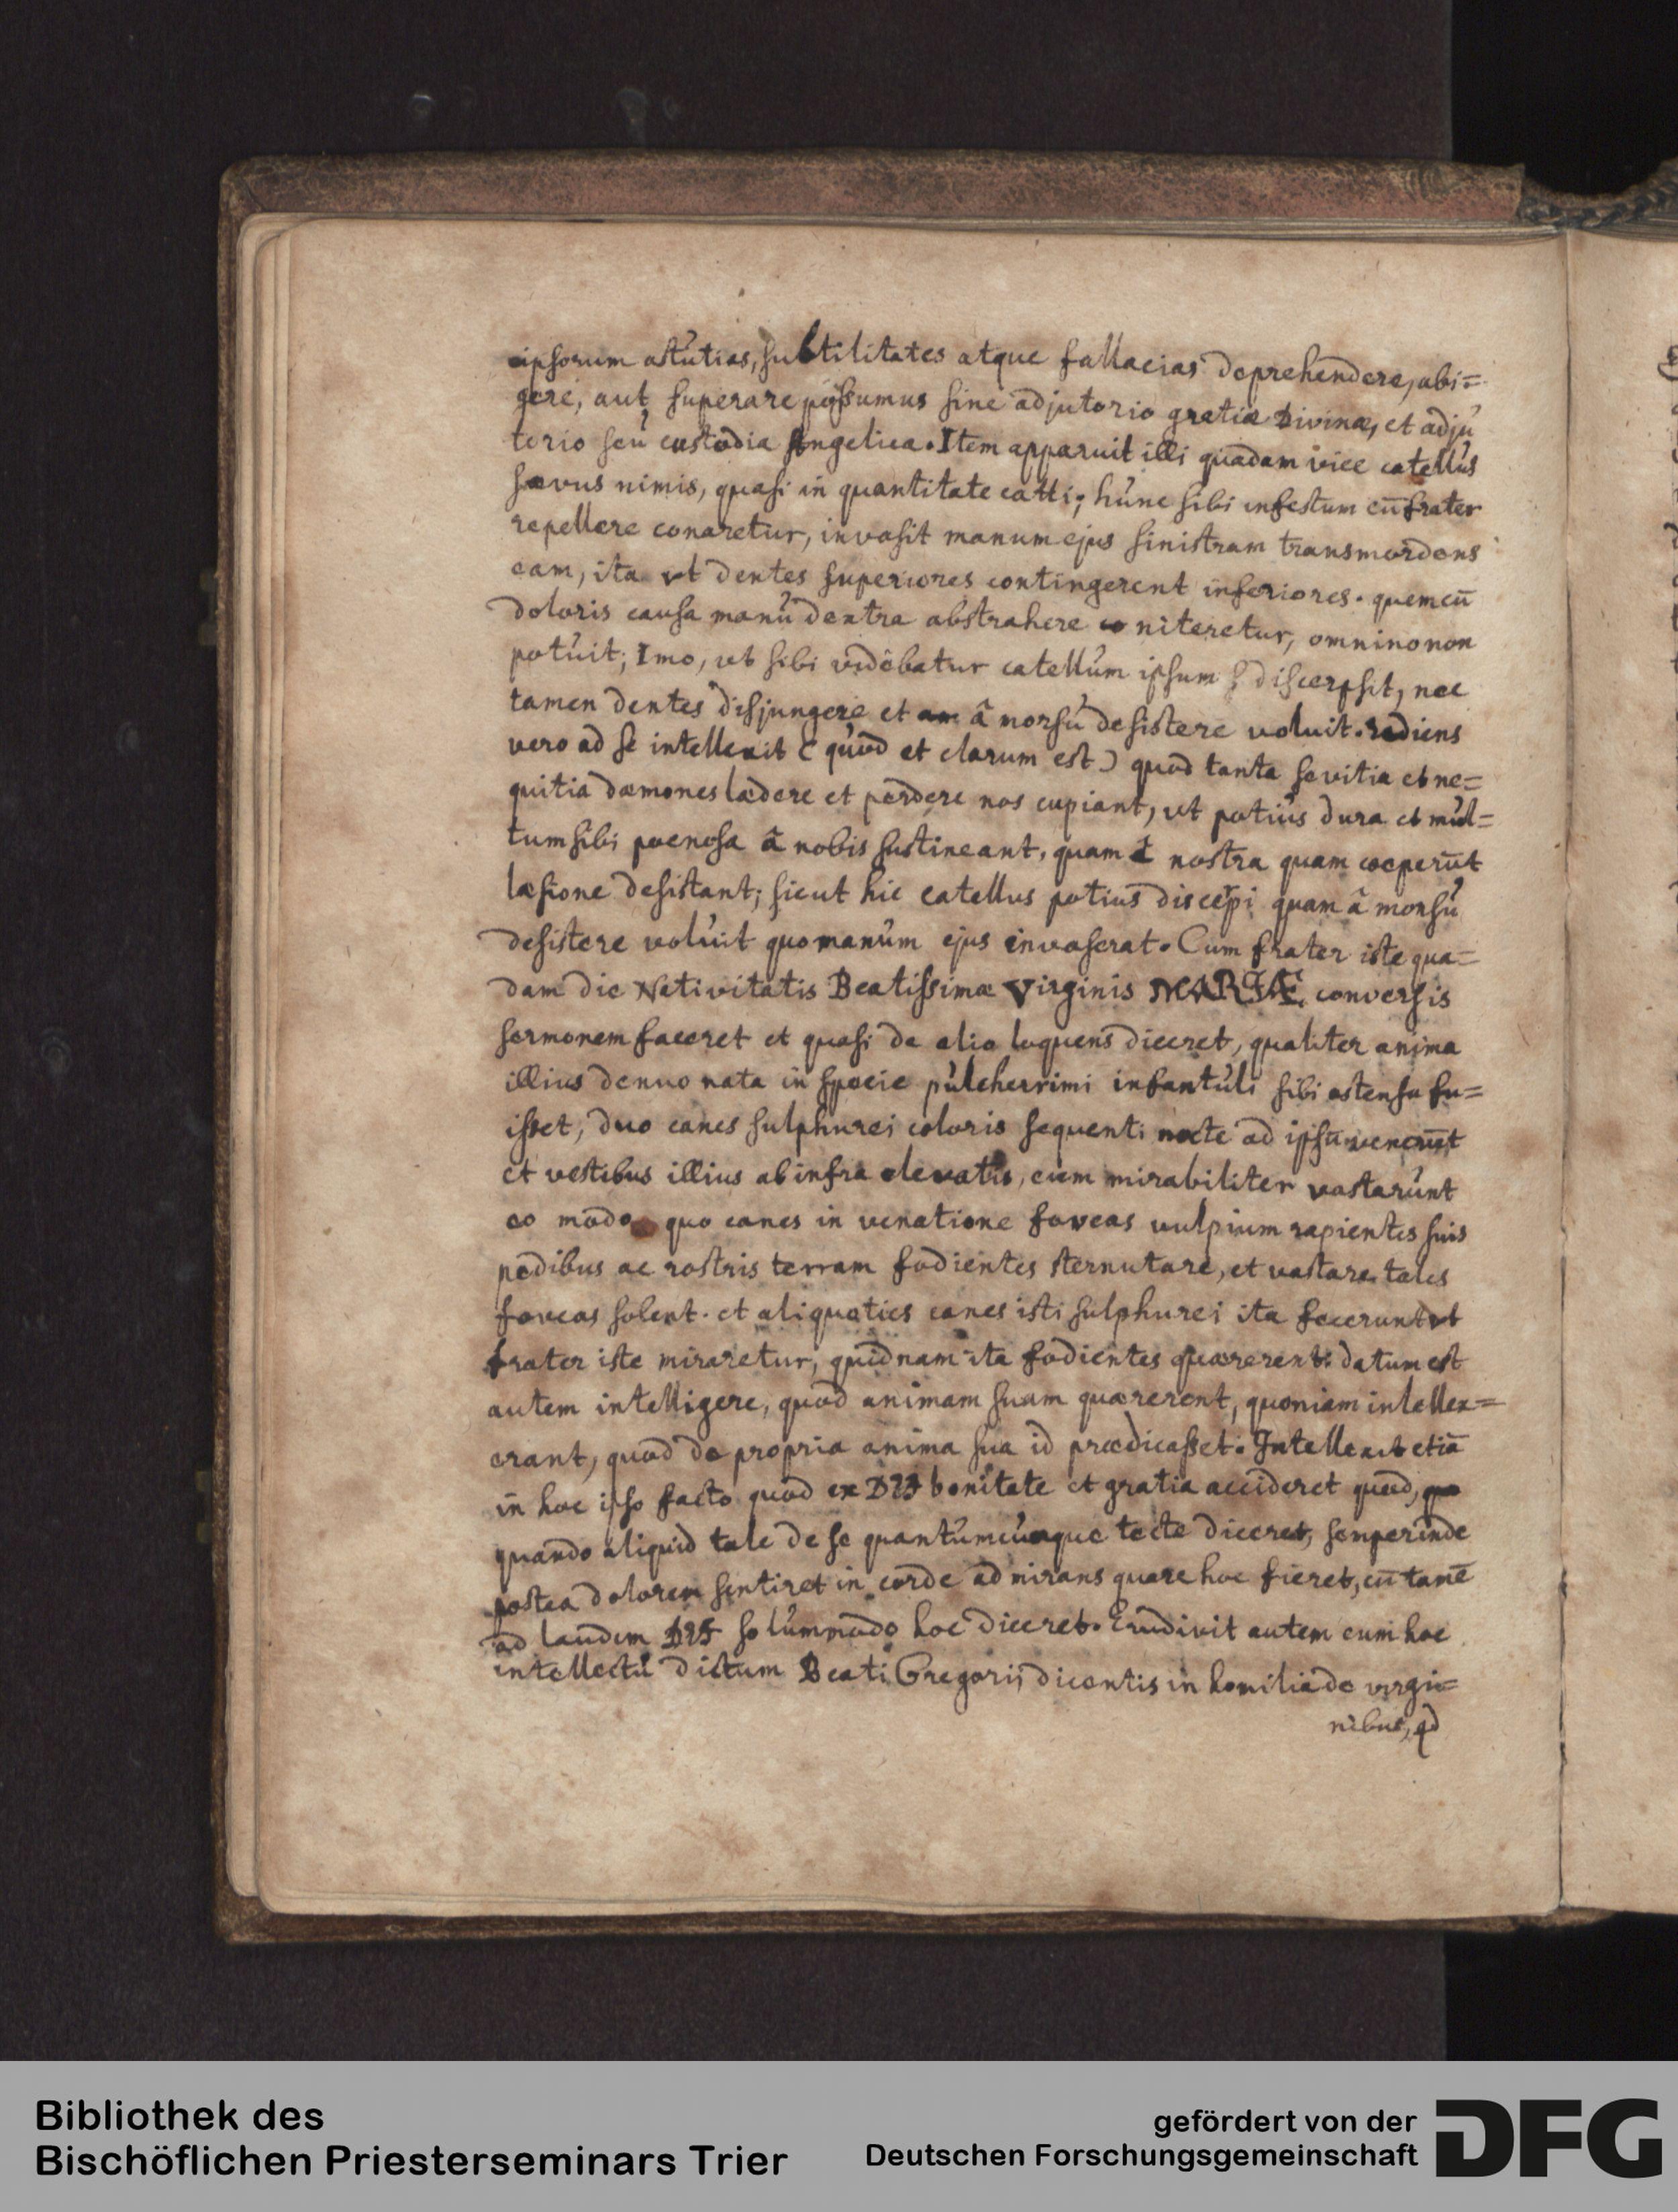 ipsorum astutias, subtilitates atque fallacias deprehendere, abi=
gere, aut superare possumus sine adjutorio gratiæ Divinæ, et adju
torio seu custodia Angelica. Item apparuit illi quadam vice catellus
sævus nimis, quasi in quantitate catti; hunc sibi infestum cū frater
repellere conaretur, invasit manum ejus sinistram transmordens
eam, ita ut dentes superiores contingerent inferiores. quem cū
doloris causa manu dextra abstrahere co niteretur, omnino non
potuit; Imo, ut sibi videbatur catellum ipsum discerpsit, nec
tamen dentes disjungere et â morsu desistere voluit. rediens
vero ad se intellexit (quod et clarum est) quod tanta sevitia et ne=
quitia dæmones lædere et perdere nos cupiant, ut potius dura et mul=
tum sibi poenosa â nobis sustineant, quam â nostra quam coeperūt
læsione desistant; sicut hic catellus potius discerpi quam â morsu
desistere voluit quo manum ejus invaserat. Cum frater iste qua=
dam die Nativitatis Beatissimæ Virginis MARIÆ, conversis
sermonem faceret et quasi de alio loquens diceret, qualiter anima
illius denuo nata in specie pulcherrimi infantuli sibi ostensa fu=
isset, duo canes sulphurei coloris sequenti nocte ad ipsū venerūt
et vestibus illius ab infra elevatis, eum mirabiliter vastarunt
eo modo quo canes in venatione foveas vulpium rapientes suis
pedibus ac rostris terram fodientes sternutare, et vastare tales
foveas solent. et aliquoties canes isti sulphurei ita fecerunt ut
frater iste miraretur, quidnam ita fodientes quærerent: datum est
autem intelligere, quod animam suam quærerent, quoniam intellex=
erant, quod de propria anima sua id prædicasset. Intellexit etiā
in hoc ipso facto quod ex DEI bonitate et gratia accideret quod,
quando aliquid tale de se quantumcunque tecte diceret, semper inde
postea dolorem sentiret in corde admirans quare hoc fieret, cū tamē
ad laudem DEI solummodo hoc diceret. Erudivit autem eum hoc
intellectu dictum Beati Gregorij dicentis in homilia de virgi=
nibus, qd
Bibliothek des
Bischöflichen Priesterseminars Trier
gefördert von der
Deutschen Forschungsgemeinschaft
DFG